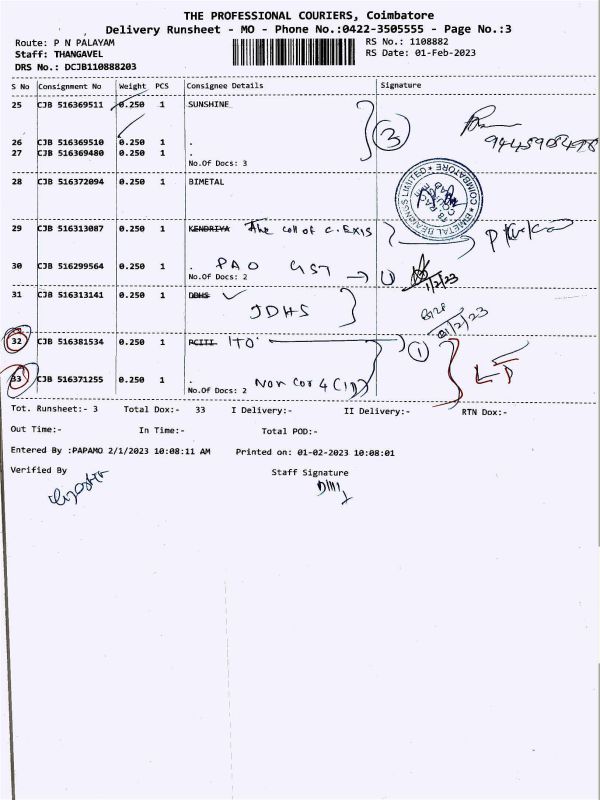 THE PROFESSIONAL COURIERS, Coimbatore
Delivery Runsheet - MO - Phone No.:0422-3505555 - Page No.:3
Route: P N PALAYAM
Staff: THANGAVEL
DRS No.: DCJB110888203
RS No.: 1108882
RS Date: 01-Feb-2023
S No Consignment No Weight PCS Consignee Details Signature
25 CJB 516369511 0.250 1 SUNSHINE
3
26 CJB 516369510 0.250 1 .
27 CJB 516369480 0.250 1 .
No.Of Docs: 3
28 CJB 516372094 0.250 1 BIMETAL
BIMETAL BEARINGS LIMITED * COIMBATORE
29 CJB 516313087 0.250 1 KENDRIYA The coll of c. Exis
30 CJB 516299564 0.250 1 . PAO GST 1
No.Of Docs: 2
1/2/23
31 CJB 516313141 0.250 1 DDHS
JDHS
01/2/23
32 CJB 516381534 0.250 1 PCITI ITO 1
33 CJB 516371255 0.250 1 . Non Cor 4 (1)
No.Of Docs: 2
Tot. Runsheet:- 3 Total Dox:- 33 I Delivery:- II Delivery:- RTN Dox:-
Out Time:- In Time:- Total POD:-
Entered By :PAPAMO 2/1/2023 10:08:11 AM Printed on: 01-02-2023 10:08:01
Verified By Staff Signature